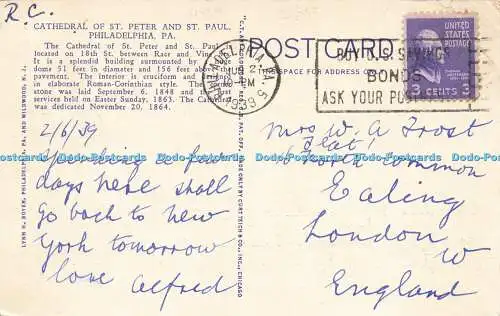 R.C.
CATHEDRAL OF ST. PETER AND ST. PAUL,
PHILADELPHIA, PA.
The Cathedral of St. Peter and St. Paul is
located on 18th St. between Race and Vine
It is a splendid building surmounted by a
dome 51 feet in diameter and 156 feet above
pavement. The interior is cruciform and
in elaborate Roman-Corinthian style. The
stone was laid September 6, 1848 and the
services held on Easter Sunday, 1863. The Cathedral
was dedicated November 20, 1864.
2/6/39
Spending a few
days here shall
go back to new
York tomorrow
love Alfred
LYNN H. BOYER, PHILADELPHIA, PA. AND WILDWOOD, N. J.
MADE ONLY BY CURT TEICH & CO., INC., CHICAGO
POST CARD
THIS SPACE FOR ADDRESS
PHILADELPHIA, PA. 5
JUN 2
PM
1939
BUY U.S. SAVINGS
BONDS
ASK YOUR POST
3 CENTS 3
Mrs W. A. Frost
flat 1
6 North Common
Ealing
London
W
England
Postcards Postcards Postcards Postcards Postcards Postcards